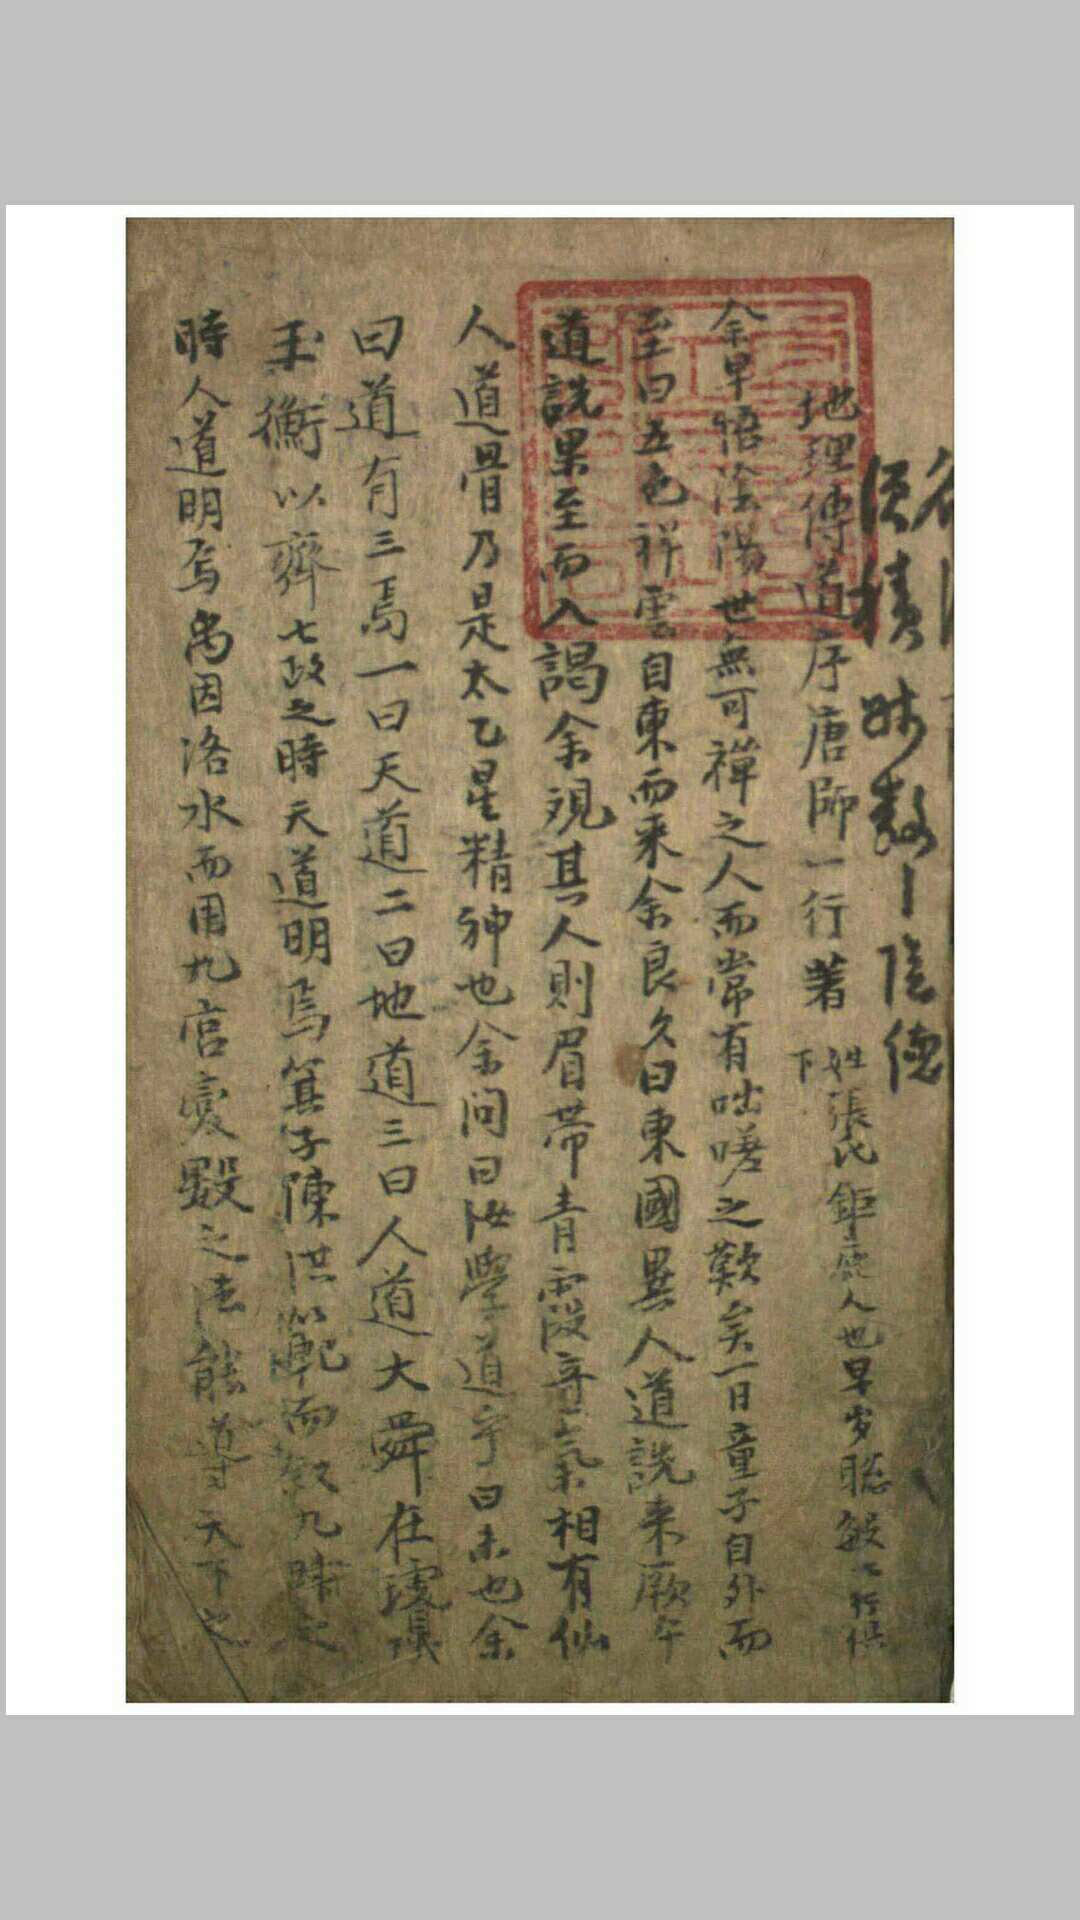 須積時數｜陰德
地理傳道序唐師一行著
姓張氏鉅鹿人也早歲聡敏
余早悟陰陽世無可禪之人而常有咄嗟之歎矣一日童子自外而
至曰五色祥雲自東而来余良久曰東國異人道詵来厥午
道詵果至而入謁余視其人則眉帶青霞奇氣相有仙
人道骨乃是太乙星精神也余问曰汝學道乎曰未也余
曰道有三焉一曰天道二曰地道三曰人道大舜在璿璣
玉衡以齊七政之時天道明焉箕子陳洪範而叙九疇之
時人道明焉禹因洛水而用九宫變數之法能導天下之